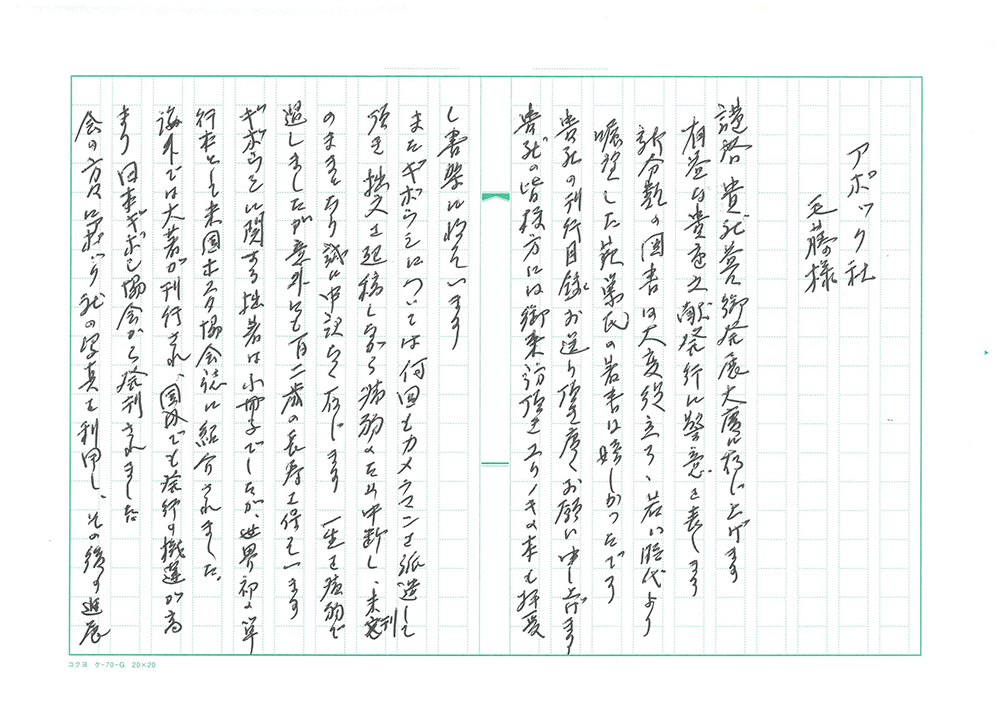 アボック社
毛藤様
謹啓 貴社益々御発展大慶に存じ上げます
有益な貴重文献発行に敬意を表します
新分類の図書は大変役立ち、若い時代より
嘱望した 氏の著書は嬉しかったです
貴社の刊行目録お送り頂き度くお願い申し上げます
貴社の皆様方には御来訪頂きユリノキの本も拝受
し書架に収めています
またギボウシについては何回もカメラマンを派遣して
頂き拙文を起稿しながら病弱のため中断し、未刊
のままとなり誠に申訳なく存じます 一生を病弱で
過しましたが意外にも百二歳の長寿を保ています
ギボウシに関する拙著は小冊子でしたが、世界初の単
行本として米国ホスタ協会誌に紹介されました。
海外では大著が刊行され、国内でも発行の機運が高
まり 日本ギボウシ協会から発刊されました
会の方々にアボック社の写真を利用し、その後の進展
コクヨ ケ-70-G 20×20